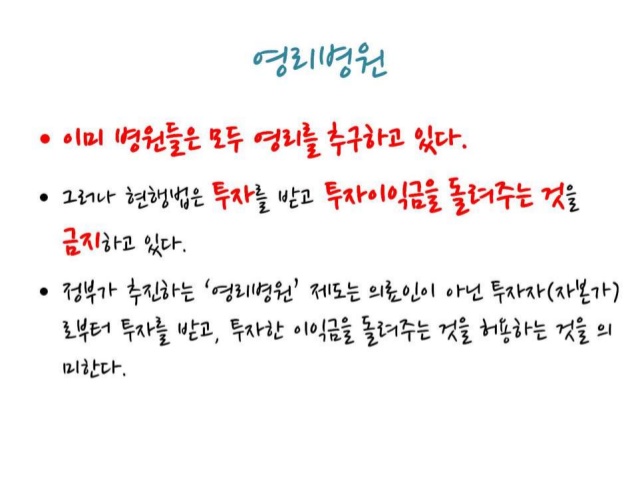 영리병원
• 이미 병원들은 모두 영리를 추구하고 있다.
• 그러나 현행법은 투자를 받고 투자이익금을 돌려주는 것을
금지하고 있다.
• 정부가 추진하는 ‘영리병원’ 제도는 의료인이 아닌 투자자(자본가)
로부터 투자를 받고, 투자한 이익금을 돌려주는 것을 허용하는 것을 의
미한다.